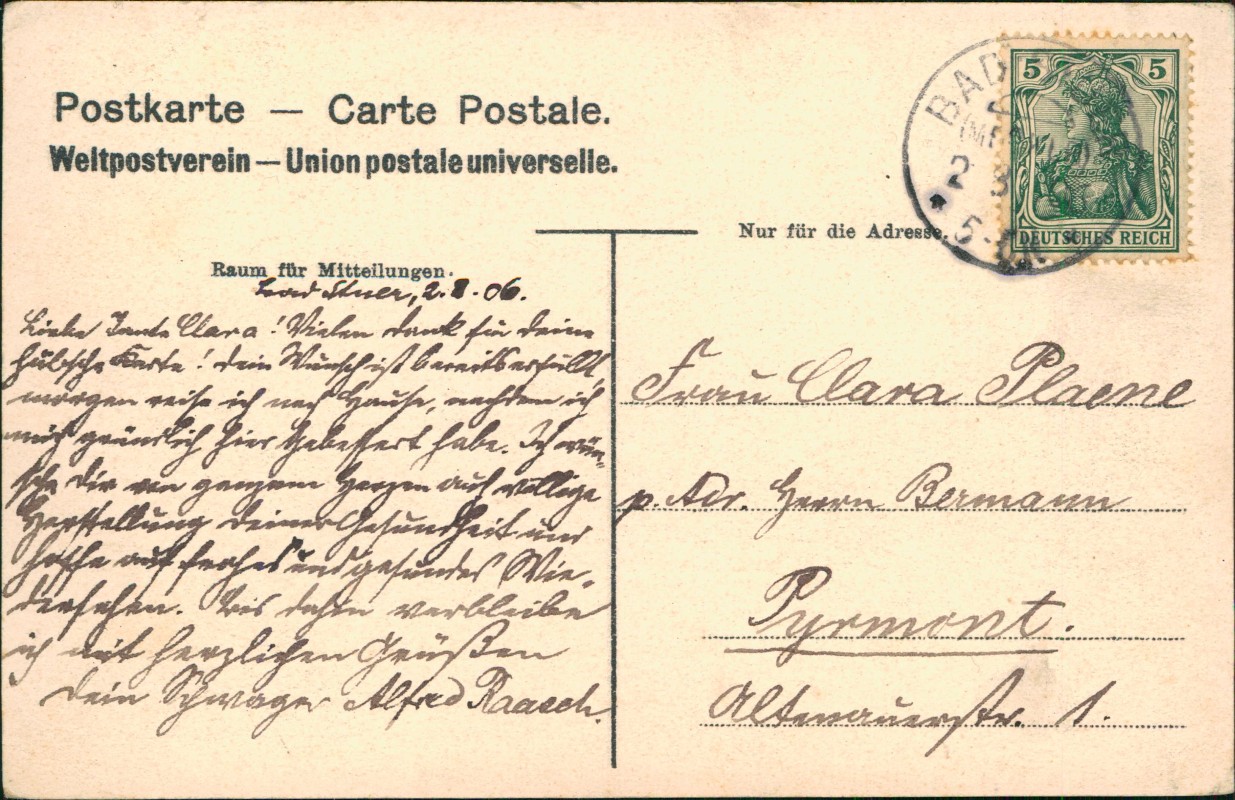 Postkarte — Carte Postale.
Weltpostverein — Union postale universelle.
BAD
2 8
5-6N.
5 5
DEUTSCHES REICH
Nur für die Adresse.
Raum für Mitteilungen.
Bad Stuer, 2.8.06.
Liebe Tante Clara! Vielen Dank für Deine
hübsche Karte! Dein Wunsch ist bereits erfüllt,
morgen reise ich nach Hause, nachdem ich
mich gründlich hier gebessert habe. Ich wün-
sche Dir von ganzem Herzen auch völlige
Herstellung Deiner Gesundheit und
hoffe auf frohes und gesundes Wie-
dersehen. Bis dahin verbleibe
ich mit herzlichen Grüßen
Dein Schwager Alfred Raasch.
Frau Clara Plaene
p. Adr. Herrn Bermann
Pyrmont.
Altenauerstr. 1.